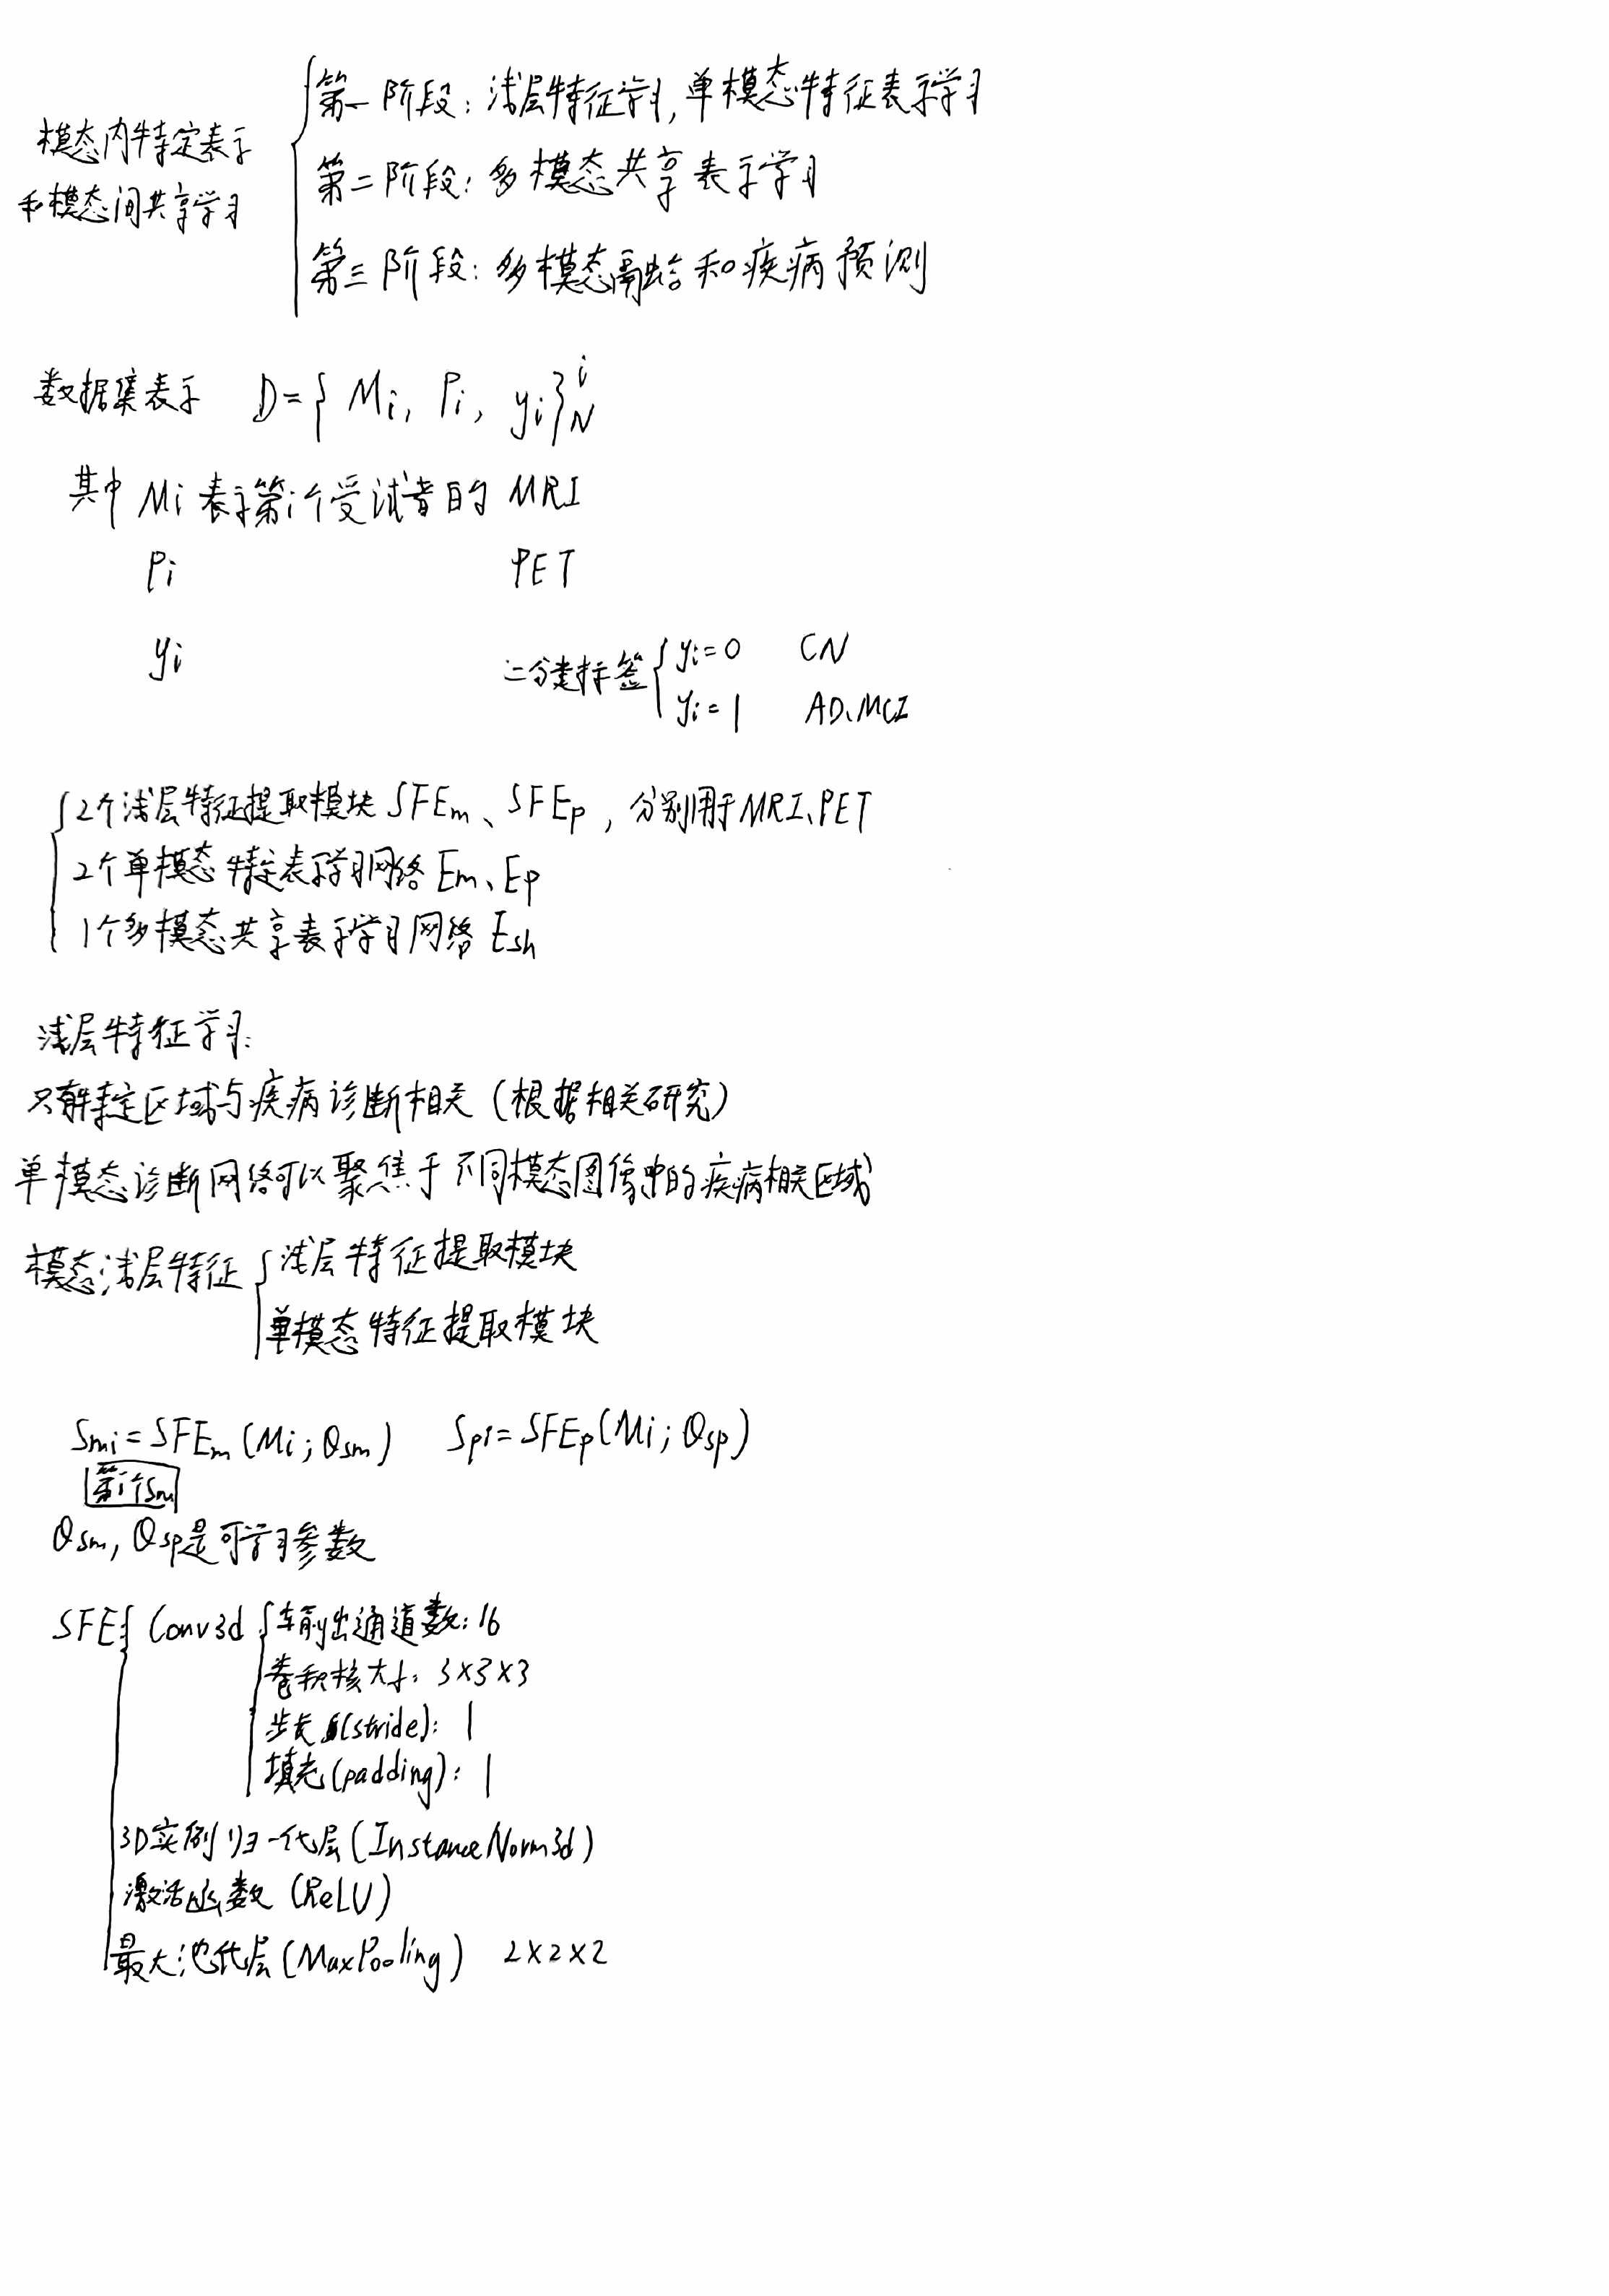 模态内特定表示
和模态间共享学习
第一阶段：浅层特征学习，单模态特征表示学习
第二阶段：多模态共享表示学习
第三阶段：多模态融合和疾病预测
数据集表示 D={Mi, Pi, yi}ᵢN
其中 Mi 表示第i个受试者的 MRI
Pi PET
yi 二分类标签 yi=0 CN
yi=1 AD、MCI
2个浅层特征提取模块 SFEm、SFEp，分别用于MRI、PET
2个单模态特定表示学习网络 Em、Ep
1个多模态共享表示学习网络 Esh
浅层特征学习：
只有特定区域与疾病诊断相关（根据相关研究）
单模态诊断网络可以聚焦于不同模态图像中的疾病相关区域
模态浅层特征 浅层特征提取模块
单模态特征提取模块
Smi=SFEm(Mi;θsm) Spi=SFEp(Mi;θsp)
第i个Sm
θsm, θsp是可学习参数
SFE Conv3d 输出通道数：16
卷积核大小：3×3×3
步长(stride)：1
填充(padding)：1
3D实例归一化层(InstanceNorm3d)
激活函数(ReLU)
最大池化层(MaxPooling) 2×2×2